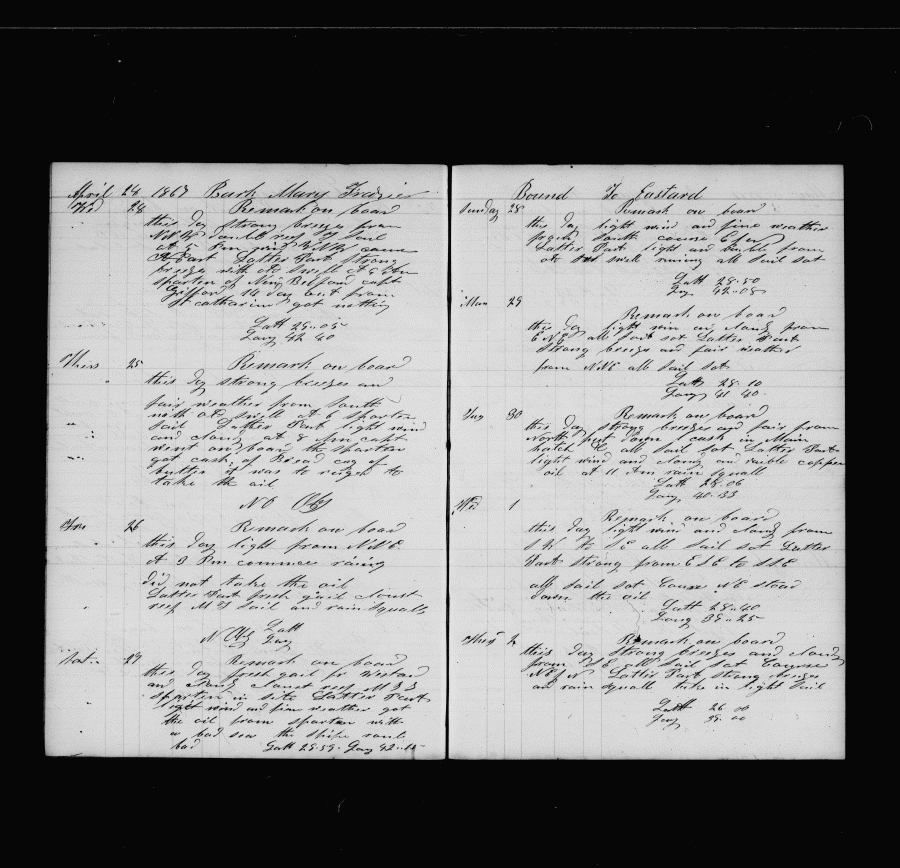 April 24 1867 Bark Mary Frazier
Wed 24 Remark on board
this day strong breeze from
NNW double reef T Sail
at 5 Pm wind
Part Latter Part strong
breeze with old swell at 6 Am
sparten of New Belford capt
Gifford 12 day out from
St catharine got nothing
Latt 29..05
Long 42 40
Thurs 25 Remark on board
this day strong breezes an
fair weather from South
with old swell at 6 sparten
sail Latter Part light wind
and cloudy at 8 Am capt
went on board the sparten
got cask of Bread cag of
butter it was to ruged to
take the oil
NO Obs
Fri 26 Remark on board
this day light from NNE
At 9 Pm commence raing
did not take the oil
Latter Part fresh gail doust
reef M T Sail and rain squalls
N Obs Latt
Long
Sat 27 Remark on board
this day fresh gail fr westard
and
sparten in site Latter Part
light wind and fine weather got
the oil from sparten with
a bad sea the ships
bad Latt 28-59 Long 42..15
Bound To Eastard
Sunday 28 Remark on board
this day light wind and fine weather
from South course E
Latter Part light and from
old swell all sail sot
Latt 28-50
Long 42-08
Mon 29 Remark on board
this day light win an cloudy from
ENE all sail sot Latter Part
strong breeze and fair weather
from NNE all sail sot
Latt 28-10
Long 41 40
Tug 30 Remark on board
this day strong breezes and fair from
North put down 1 cask in Main
hatch all sail sot Latter Part
light wind and cloudy and
oil at 11 Am rain squall
Latt 28-06
Long 40-33
Wed 1 Remark on board
this day light wind and cloudy from
S W to S E all sail sot Latter
Part strong from ESE to SSE
all sail sot Course NE stoad
down the oil
Latt 27-40
Long 39-25
Thurs 2 Remark on board
this day strong breezes and cloudy
from all sail sot Course
Latter Part strong breezes
an rain squalls take in light sail
Latt 26 00
Long 39-00